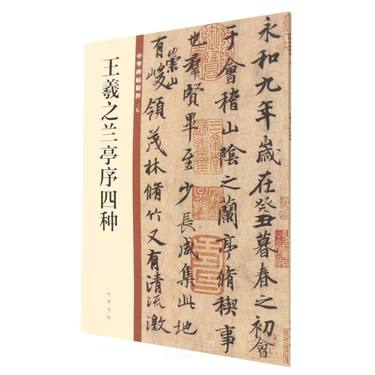 永和九年歲在癸丑暮春之初會
于會稽山陰之蘭亭脩稧事
也羣賢畢至少長咸集此地
有崇山
峻領茂林脩竹又有清流激
中华碑帖精粹
王羲之兰亭序四种
中华书局